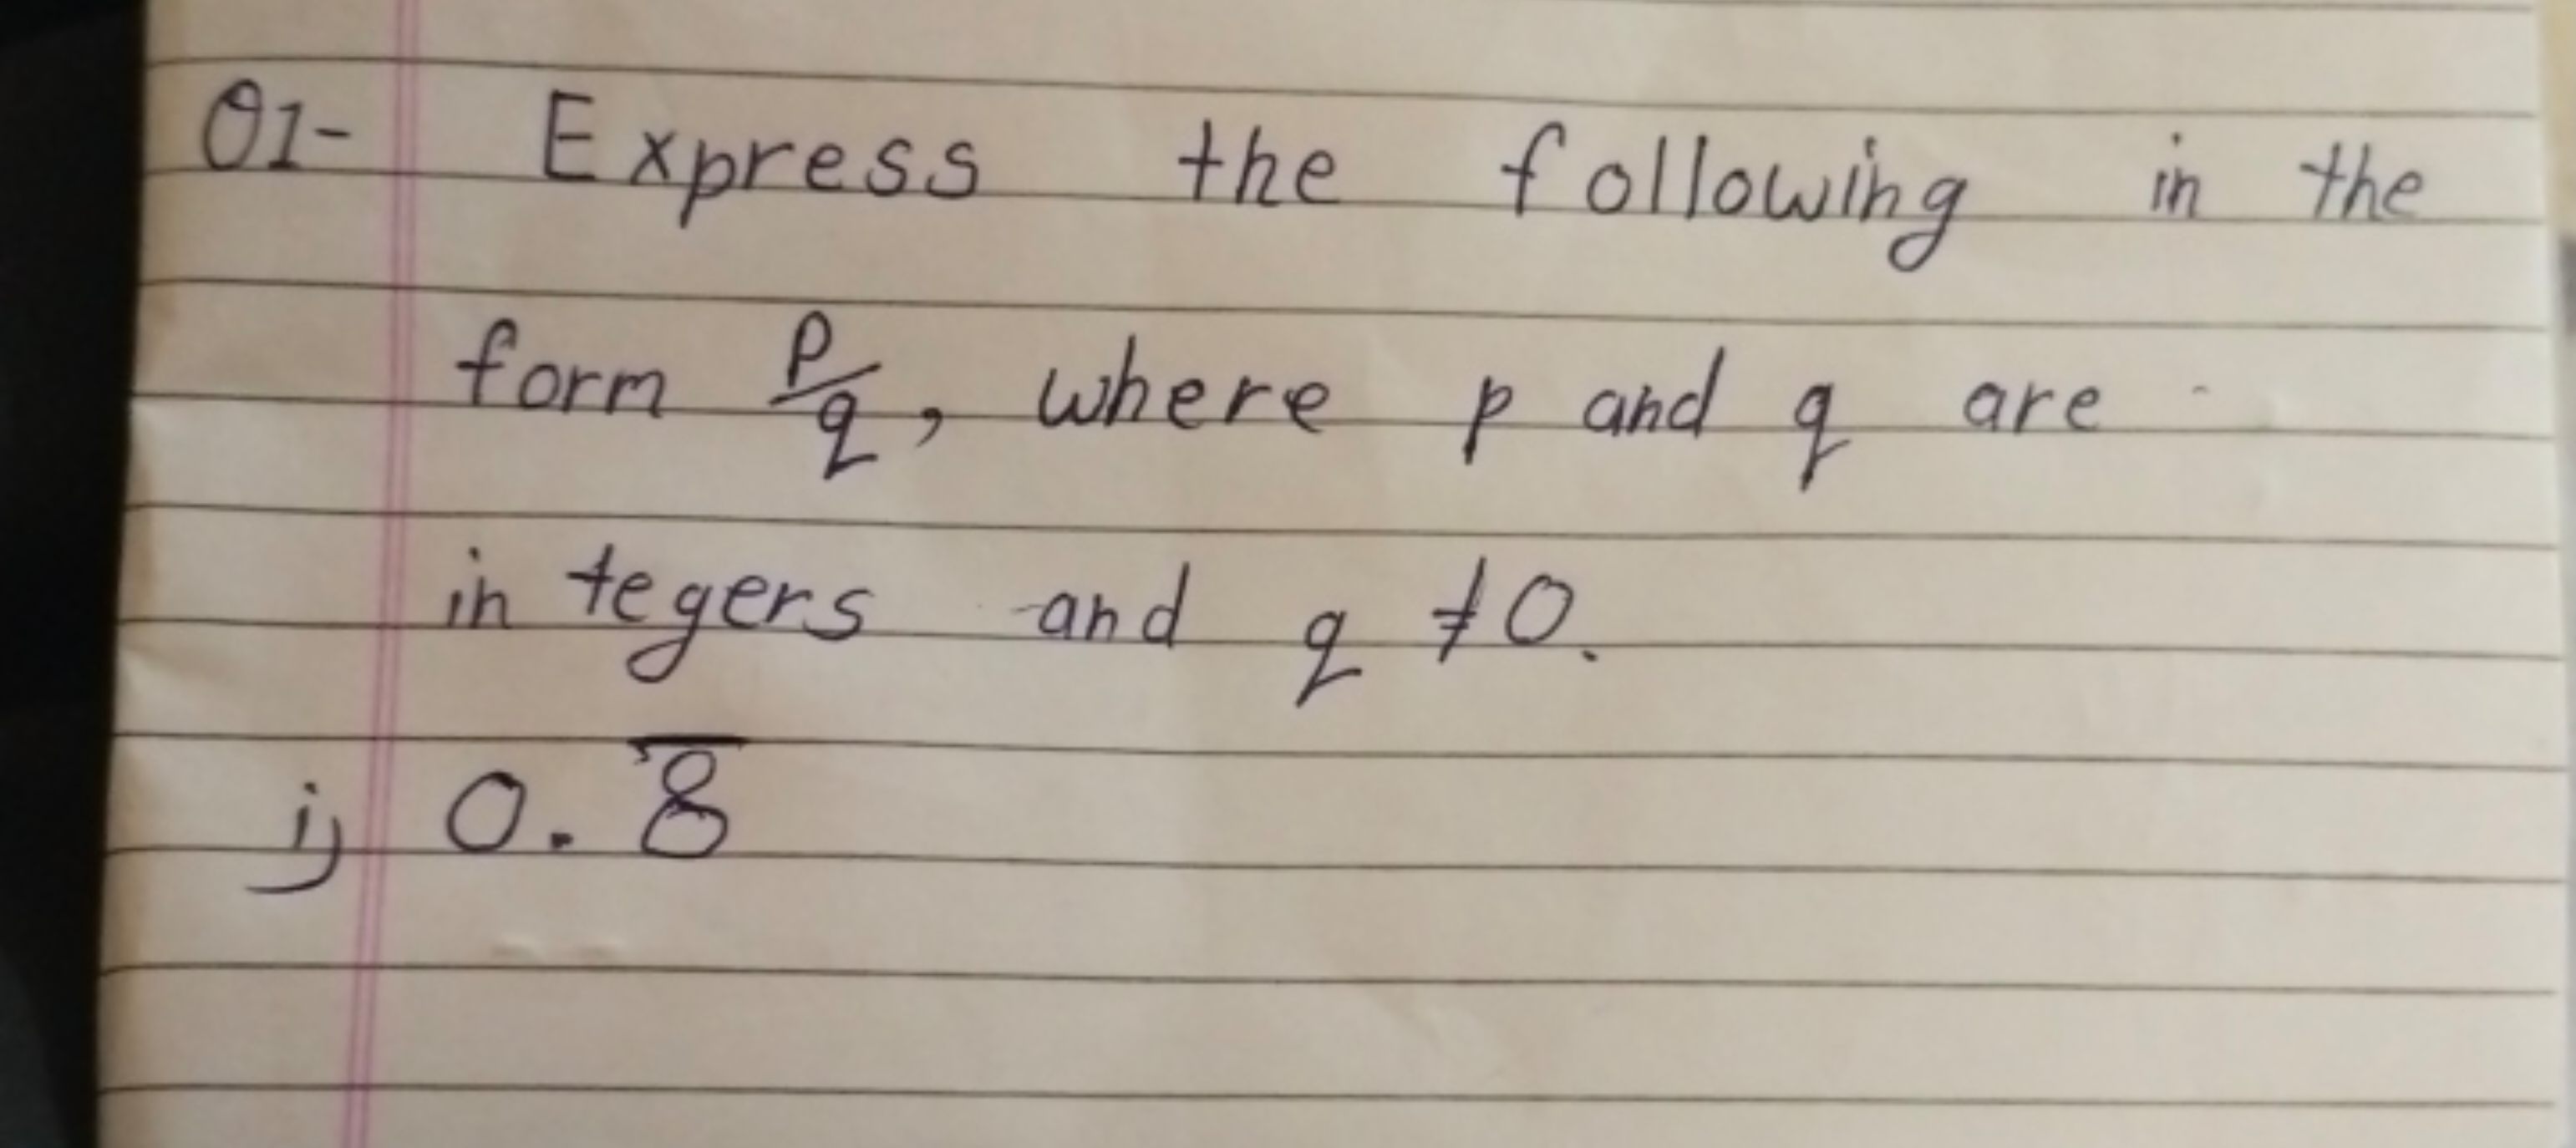 Q1- Express the following in the
form p/q, where p and q are
in tegers and q ≠0.
i) 0.8̅